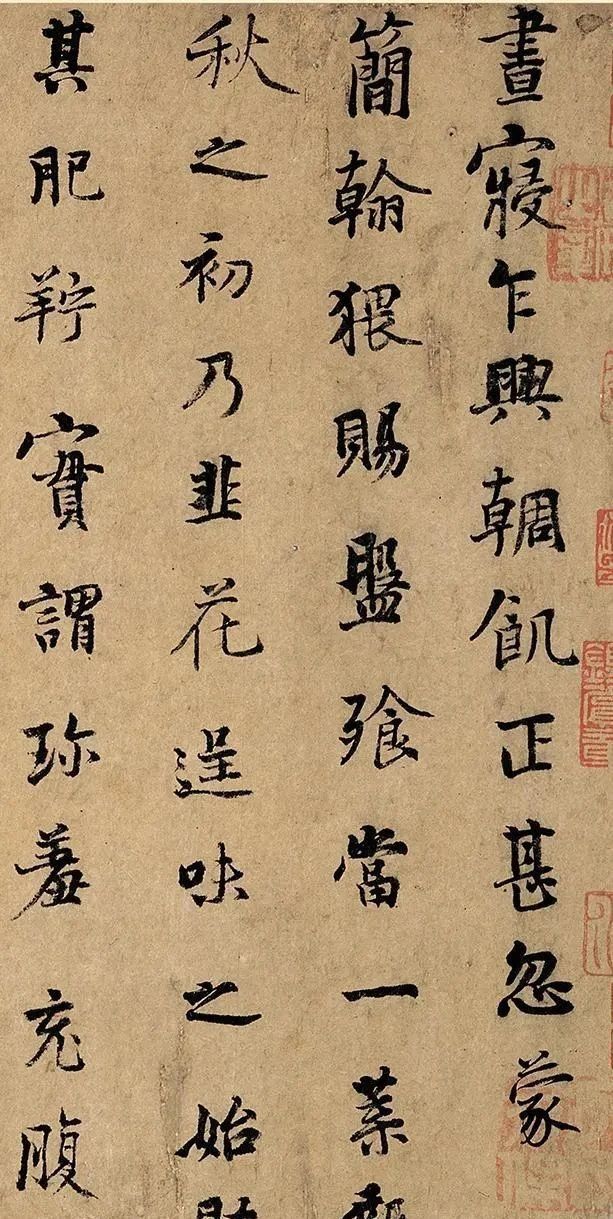 晝寢乍興輖飢正甚忽蒙
簡翰猥賜盤飧當一葉
秋之初乃韭花逞味之始
其肥羜實謂珍羞充腹